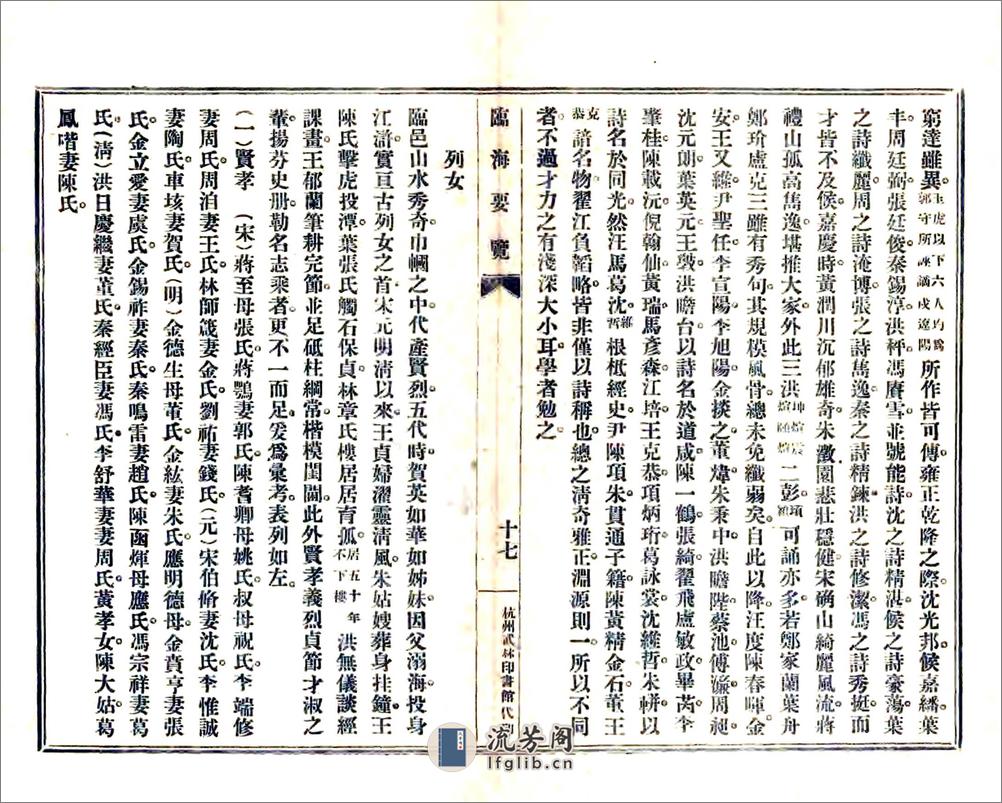 窮達雖異 王虎以下六人均爲郭守所誣謫戍遼陽 所作皆可傳雍正乾隆之際沈光邦侯嘉繙葉
丰周廷弼張廷俊秦錫淳洪枰馮賡雪並號能詩沈之詩精湛侯之詩豪蕩葉
之詩纖麗周之詩淹博張之詩雋逸秦之詩精鍊洪之詩修潔馮之詩秀挺而
才皆不及侯嘉慶時黃潤川沉郁雄奇朱澂園悲壯穩健宋确山綺麗風流蔣
禮山孤高雋逸堪推大家外此三洪 坤煊震煊頤煊 二彭 可誦亦多若鄭家蘭葉舟
鄭玠盧克三雖有秀句其規模風骨總未免纖弱矣自此以降汪度陳春暉金
安王又繼尹聖任李宣陽李旭陽金掞之董煒朱秉中洪瞻陛蔡池傅濂周昶
沈元朗葉英元王斅洪瞻台以詩名於道咸陳一鶴張綺翟飛盧敏政畢芮李
肇桂陳載沅倪翰仙黃瑞馬彥森江培王克恭項炳珩葛詠裳沈維哲朱軿以
詩名於同光然汪馬葛沈 維哲 根柢經史尹陳項朱貫通子籍陳黃精金石董王
克恭 諳名物翟江負韜略皆非僅以詩稱也總之清奇雅正淵源則一所以不同
者不過才力之有淺深大小耳學者勉之
臨海要覽
十七
杭州武林印書館代刊
列女
臨邑山水秀奇巾幗之中代產賢烈五代時賀英如華如姊妹因父溺海投身
江滸實亘古列女之首宋元明清以來王貞婦濯靈清風朱姑嫂葬身挂鐘王
陳氏擊虎投潭葉張氏觸石保貞林章氏樓居居育孤 居五十年不下樓 洪無儀談經
課畫王郁蘭筆耕完節並足砥柱綱常楷模閨闥此外賢孝義烈貞節才淑之
輩揚芬史册勒名志乘者更不一而足爰爲彙考表列如左
（一）賢孝 （宋）蔣至母張氏蔣鶚妻郭氏陳耆卿母姚氏叔母祝氏李端修
妻周氏周泊妻王氏林師蒧妻金氏劉祐妻錢氏（元）宋伯脩妻沈氏李惟誠
妻陶氏車垓妻賀氏（明）金德生母董氏金紘妻朱氏應明德母金賁亨妻張
氏金立愛妻虞氏金錫祚妻秦氏秦鳴雷妻趙氏陳函煇母應氏馮宗祥妻葛
氏（清）洪日慶繼妻董氏秦經臣妻馮氏李舒華妻妻周氏黃孝女陳大姑葛
鳳喈妻陳氏
流芳阁
lfglib.cn